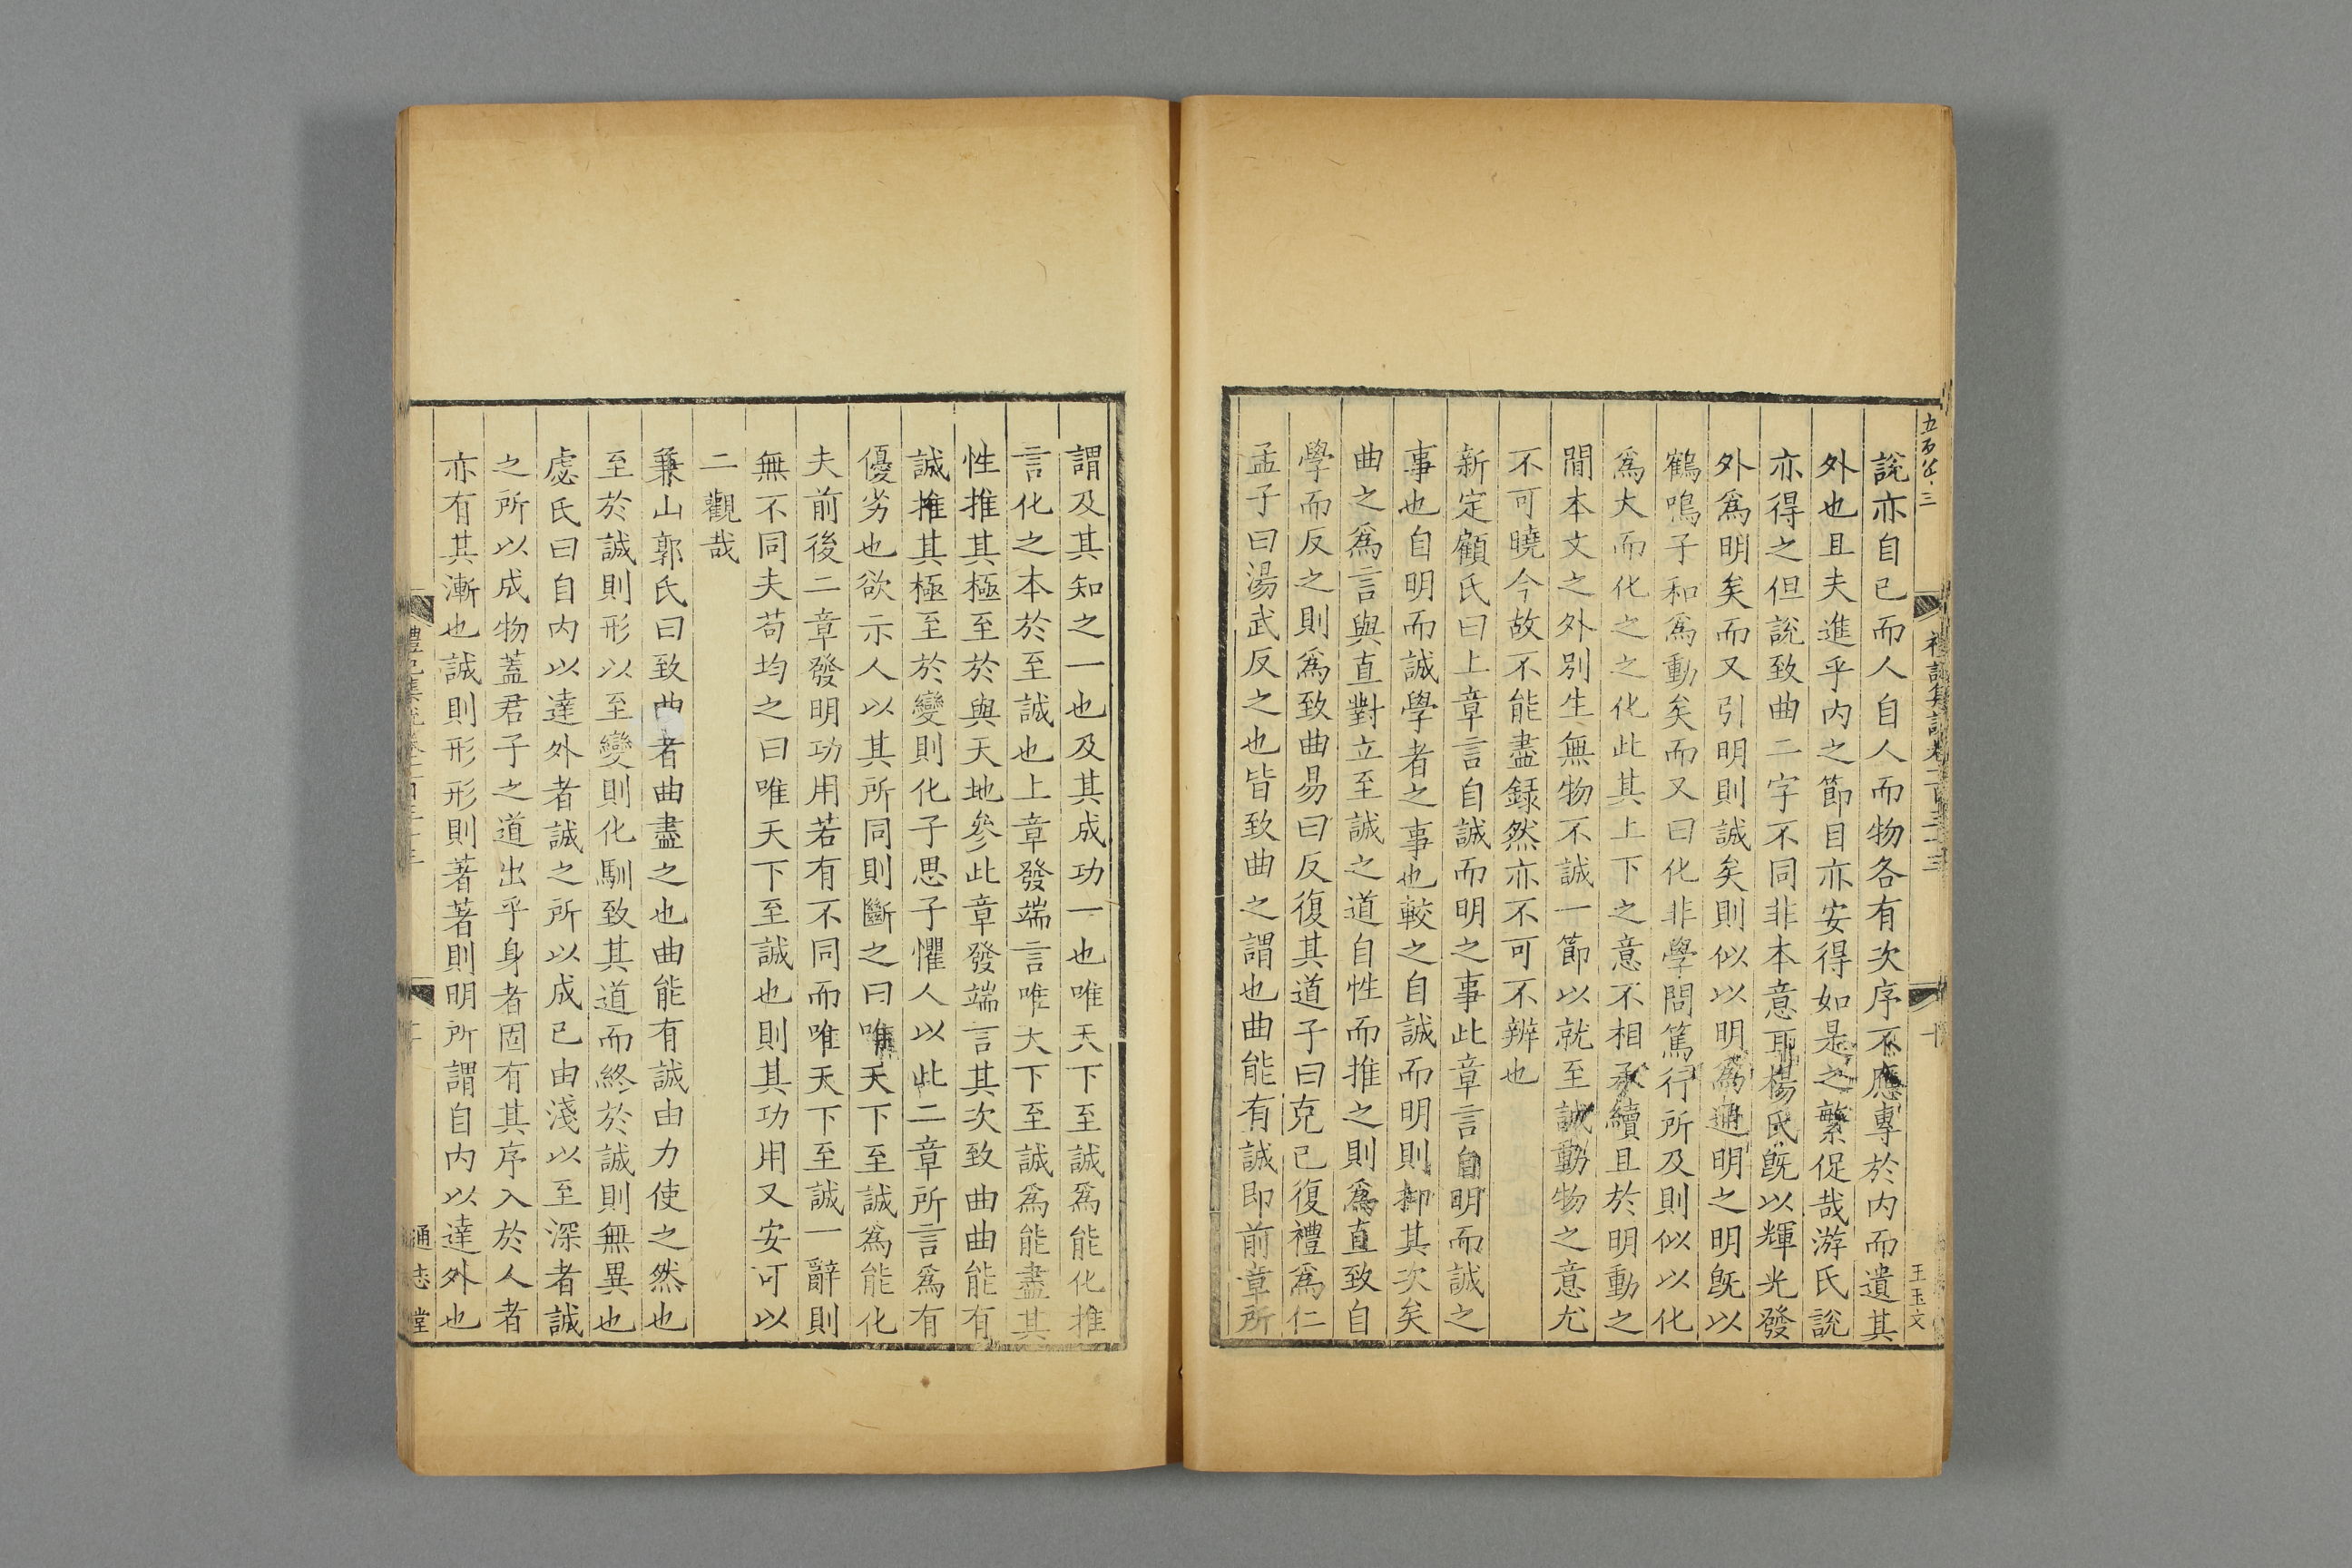 禮記集說卷一百三十三
十
王玉文
說亦自已而人自人而物各有次序不應專於内而遺其
外也且夫進乎内之節目亦安得如是之繁促哉游氏說
亦得之但說致曲二字不同非本意耶楊氏旣以輝光發
外爲明矣而又引明則誠矣則似以明爲通明之明旣以
鶴鳴子和爲動矣而又曰化非學問篤行所及則似以化
爲大而化之之化此其上下之意不相承續且於明動之
間本文之外別生無物不誠一節以就至誠動物之意尤
不可曉今故不能盡録然亦不可不辨也
新定顧氏曰上章言自誠而明之事此章言自明而誠之
事也自明而誠學者之事也較之自誠而明則抑其次矣
曲之爲言與直對立至誠之道自性而推之則爲直致自
學而反之則爲致曲易曰反復其道子曰克己復禮爲仁
孟子曰湯武反之也皆致曲之謂也曲能有誠即前章所
謂及其知之一也及其成功一也唯天下至誠爲能化推
言化之本於至誠也上章發端言唯天下至誠爲能盡其
性推其極至於與天地參此章發端言其次致曲曲能有
誠推其極至於變則化子思子懼人以此二章所言爲有
優劣也欲示人以其所同則斷之曰唯天下至誠爲能化
夫前後二章發明功用若有不同而唯天下至誠一辭則
無不同夫苟均之曰唯天下至誠也則其功用又安可以
二觀哉
兼山郭氏曰致曲者曲盡之也曲能有誠由力使之然也
至於誠則形以至變則化馴致其道而終於誠則無異也
虙氏曰自内以達外者誠之所以成已由淺以至深者誠
之所以成物蓋君子之道出乎身者固有其序入於人者
亦有其漸也誠則形形則著著則明所謂自内以達外也
通志堂